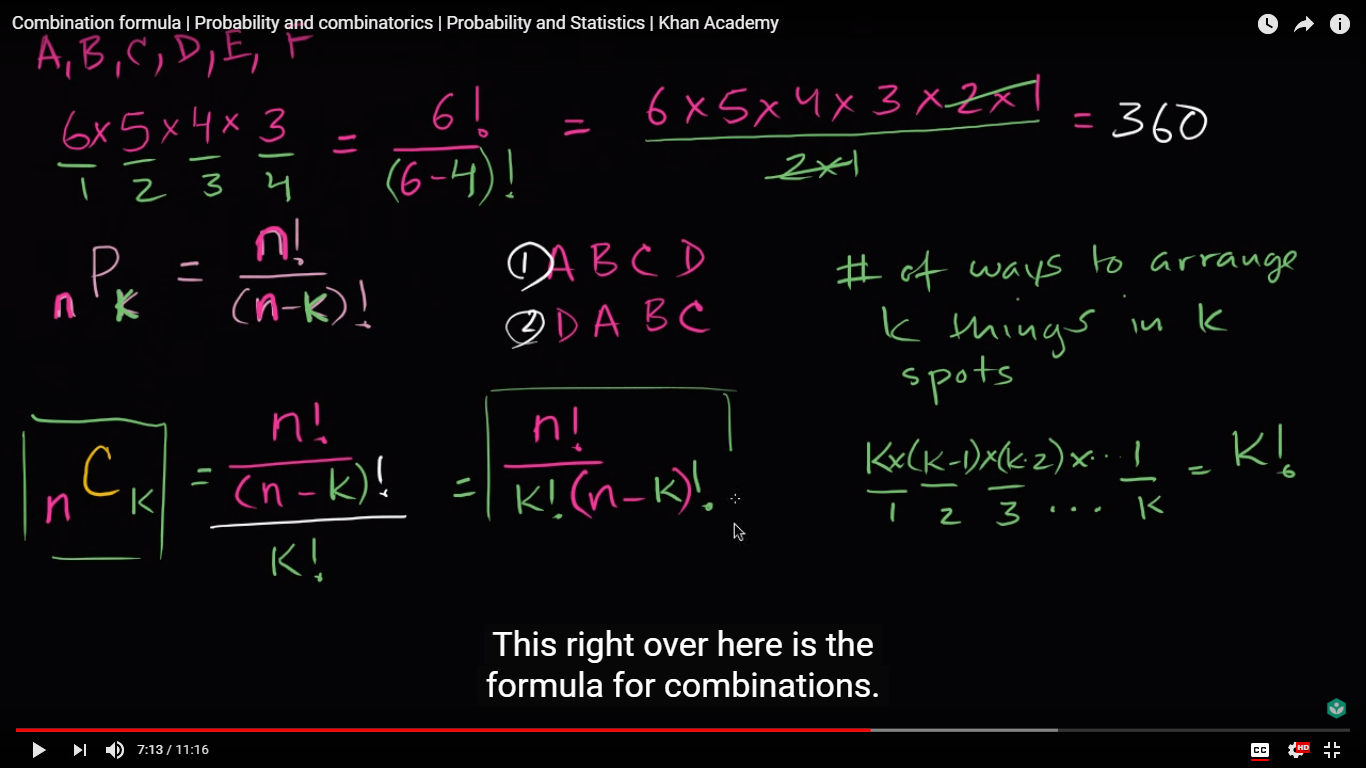 Combination formula | Probability and combinatorics | Probability and Statistics | Khan Academy
A, B, C, D, E, F
6 × 5 × 4 × 3 = 6! / (6-4)! = 6 × 5 × 4 × 3 × 2 × 1 / 2 × 1 = 360
1 2 3 4
nPk = n! / (n-k)!
① A B C D
② D A B C
# of ways to arrange
k things in k
spots
nCk = n! / (n-k)! / k! = n! / k!(n-k)!
k×(k-1)×(k-2)×... 1 = k!
1 2 3 ... k
This right over here is the
formula for combinations.
7:13 / 11:16
CC
HD